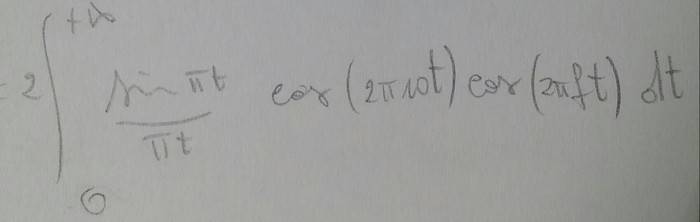 = 2 ∫₀^{+∞} (sin πt)/(πt) cos(2π10t) cos(2πft) dt